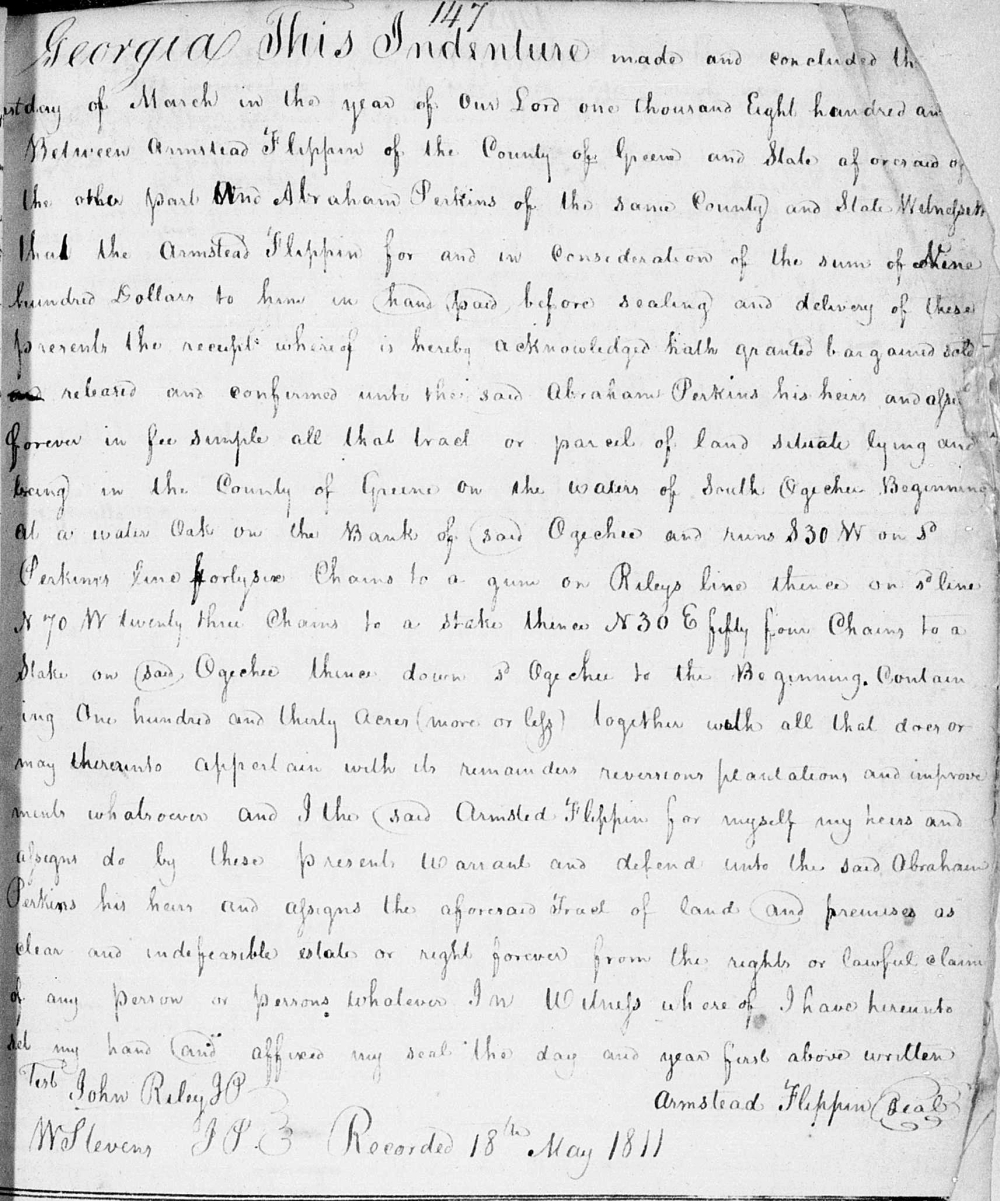 147
Georgia This Indenture made and concluded th
day of March in the year of Our Lord one thousand Eight hundred an
Between Armstead Flippin of the County of Greene and State aforesaid of
the other part And Abraham Perkins of the same County and State Witnesseth
that the Armstead Flippin for and in consideration of the sum of Nine
hundred Dollars to him in hand paid before sealing and delivery of these
presents the receipt whereof is hereby acknowledged hath granted bargained sold
and released and confirmed unto the said Abraham Perkins his heirs and assi
forever in fee simple all that tract or parcel of land situate lying and
being in the County of Greene on the waters of South Ogechee Beginning
at a water Oak on the Bank of said Ogechee and runs S30 W on sd
Perkinss line fortysix Chains to a gum on Rileys line thence on sd line
N 70 W twenty three Chains to a stake thence N30 E fifty four Chains to a
Stake on said Ogechee thence down sd Ogechee to the Beginning. Contain
ing One hundred and thirty Acres (more or less) together with all that does or
may thereunto appertain with its remainders reversions plantations and improve
ments whatsoever and I the said Armsted Flippin for myself my heirs and
assigns do by these present warrant and defend unto the said Abraham
Perkins his heirs and assigns the aforesaid Tract of land and premises as
clear and indefeasible estate or right forever from the rights or lawful claim
of any person or persons whatever In Witness where of I have hereunto
set my hand and affixed my seal the day and year first above written
Test John Riley JP
Armstead Flippin Seal
W Stevens J.P. Recorded 18th May 1811